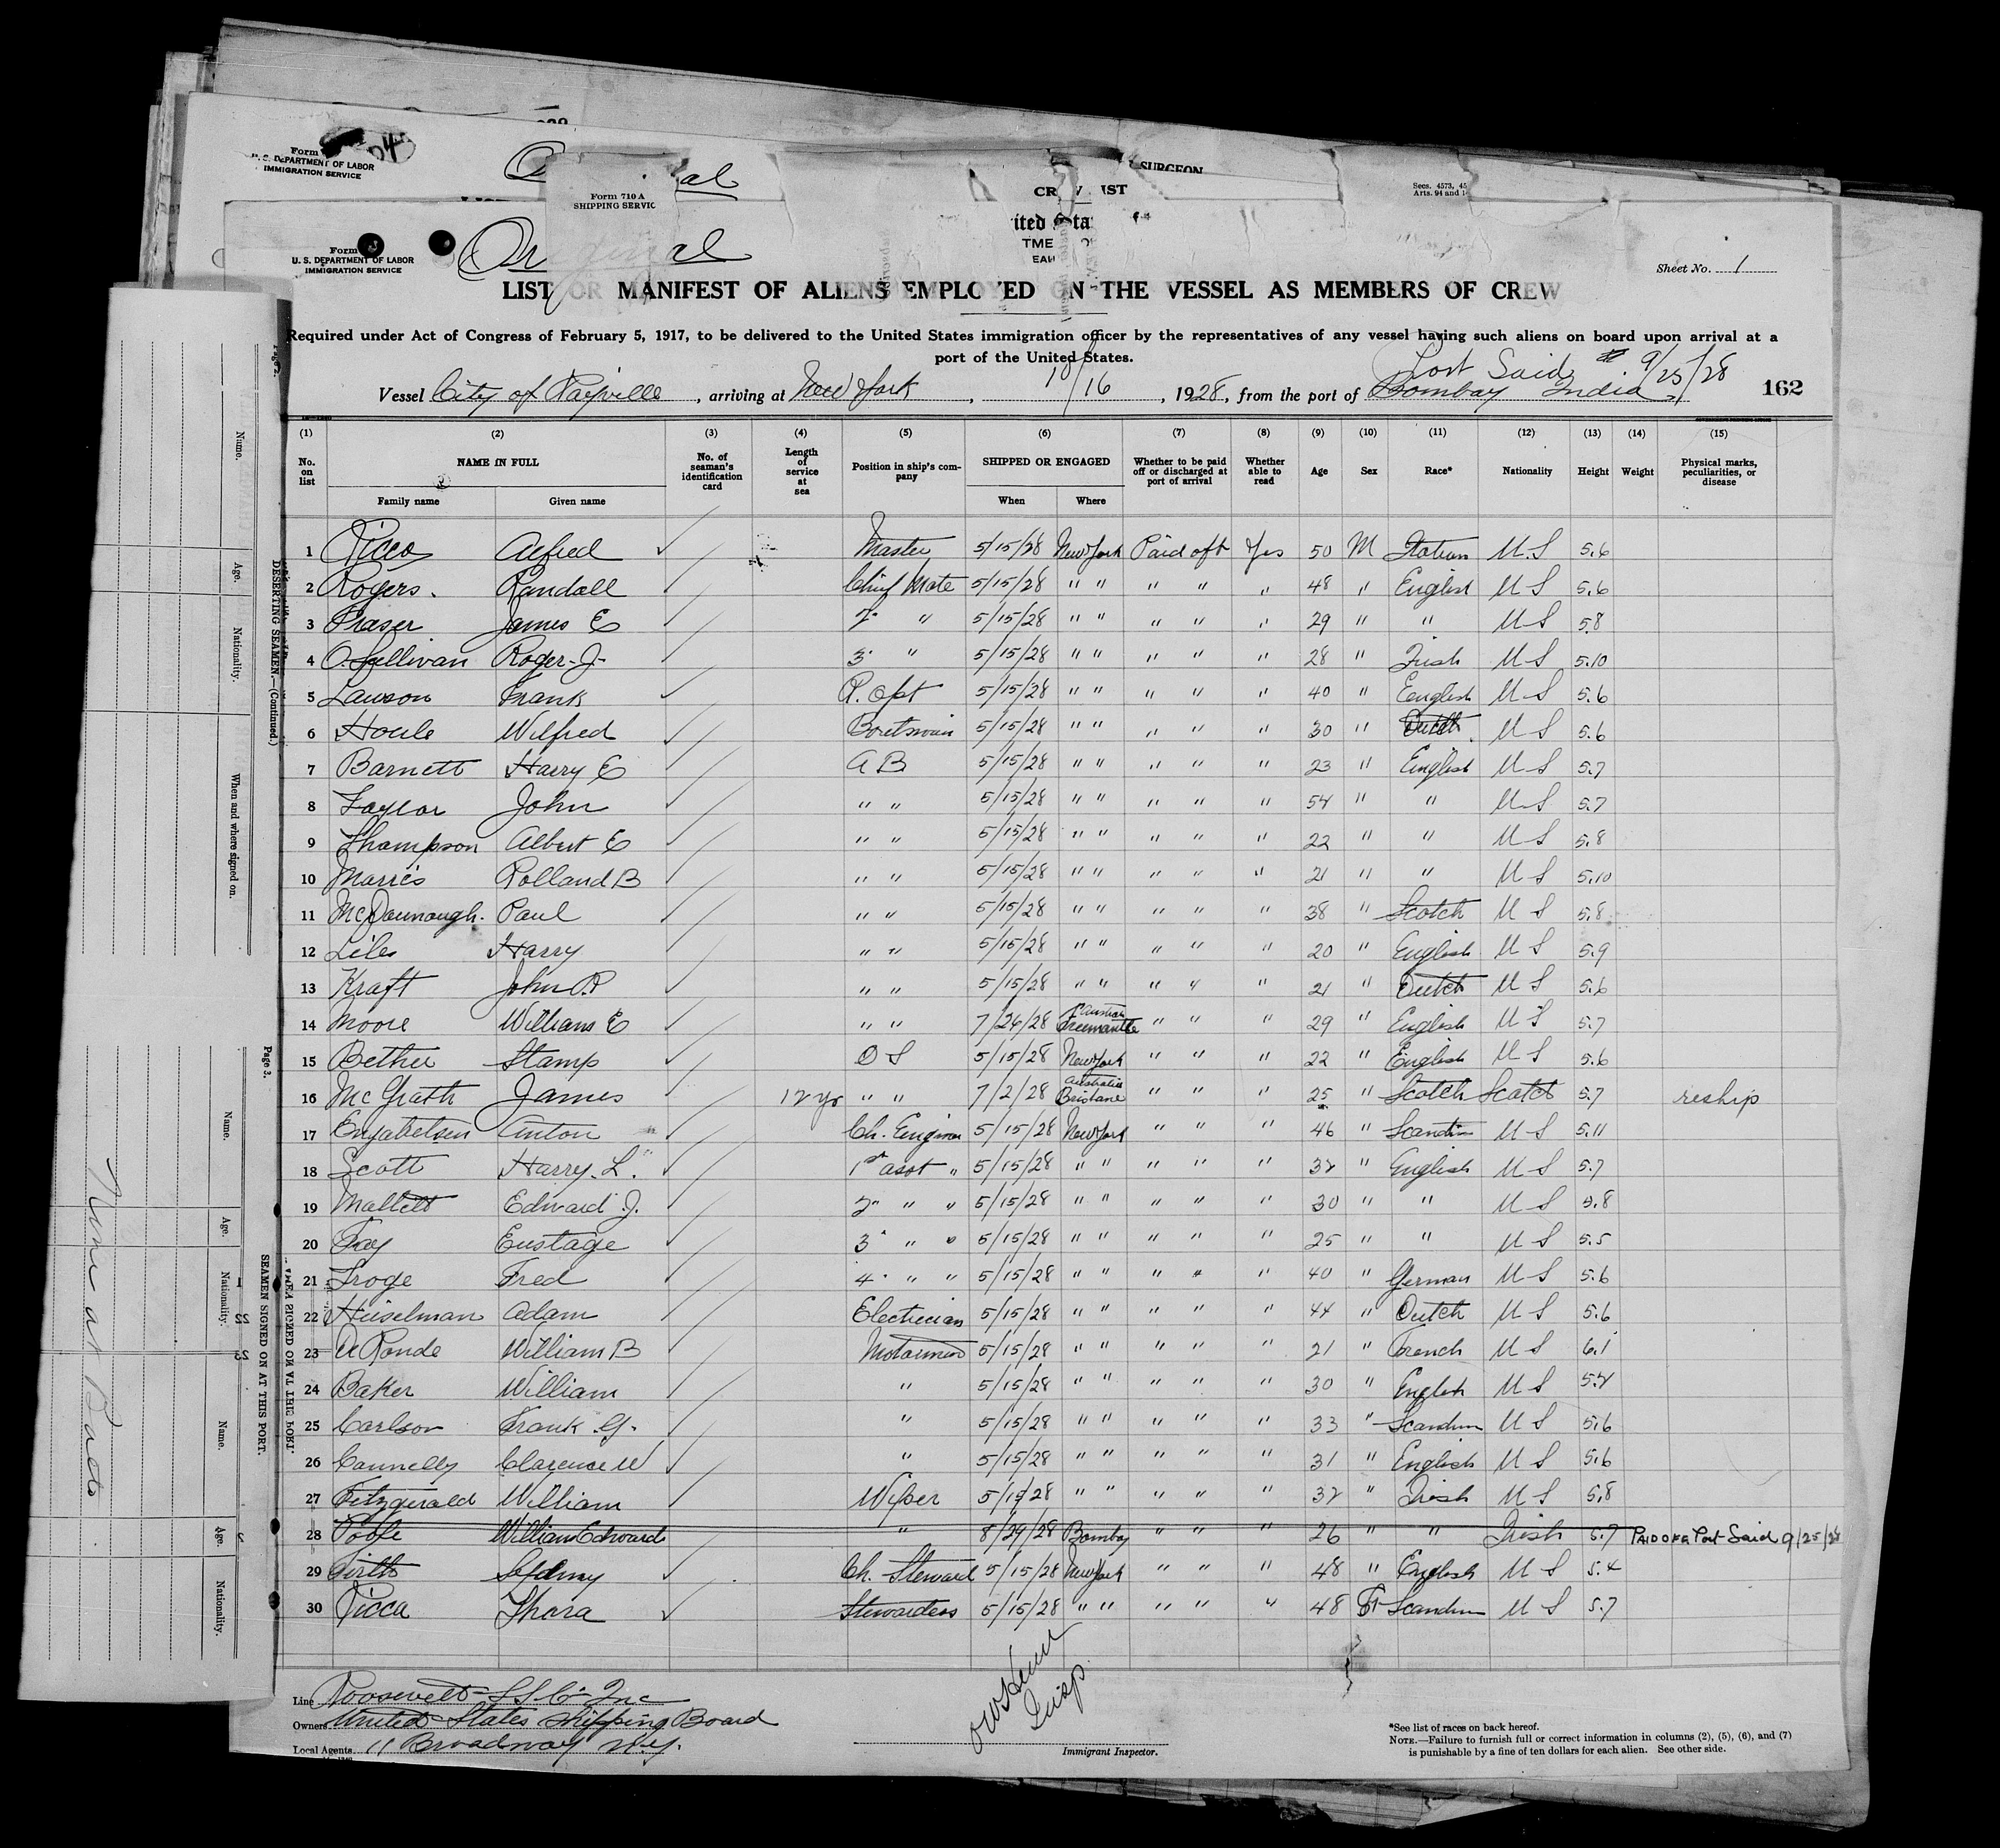 Form
U. S. DEPARTMENT OF LABOR
IMMIGRATION SERVICE
SURGEON
Form 710 A
SHIPPING SERVIC
Secs. 4573, 45
Arts. 94 and 1
Form
U. S. DEPARTMENT OF LABOR
IMMIGRATION SERVICE
Original
Sheet No. 1
LIST OR MANIFEST OF ALIENS EMPLOYED ON THE VESSEL AS MEMBERS OF CREW
Required under Act of Congress of February 5, 1917, to be delivered to the United States immigration officer by the representatives of any vessel having such aliens on board upon arrival at a
port of the United States.
Port Said 9/25/28
Vessel City of Rayville, arriving at New York, 10/16, 1928, from the port of Bombay India 162
(1) (2) (3) (4) (5) (6) (7) (8) (9) (10) (11) (12) (13) (14) (15)
No. on list NAME IN FULL No. of seaman's identification card Length of service at sea Position in ship's company SHIPPED OR ENGAGED Whether to be paid off or discharged at port of arrival Whether able to read Age Sex Race* Nationality Height Weight Physical marks, peculiarities, or disease
Family name Given name When Where
1 Ricca Alfred Master 5/15/28 New York Paid off Yes 50 M Italian U.S 5.6
2 Rogers Randall Chief Mate 5/15/28 " " " " " 48 " English U S 5.6
3 Fraser James E 2" " 5/15/28 " " " " " 29 " " U S 5.8
4 O'Sullivan Roger J 3" " 5/15/28 " " " " " 28 " Irish U S 5.10
5 Lawson Frank R. Opt 5/15/28 " " " " " 40 " English U S 5.6
6 Houle Wilfred Boatswain 5/15/28 " " " " " 30 " Dutch U S 5.6
7 Barnett Harry E A B 5/15/28 " " " " " 23 " English U S 5.7
8 Taylor John " " 5/15/28 " " " " " 54 " " U S 5.7
9 Thompson Albert E " " 5/15/28 " " " " " 22 " " U S 5.8
10 Rolland B " " 5/15/28 " " " " " 21 " " U S 5.10
11 McDonnough Paul " " 5/15/28 " " " " " 38 " Scotch U S 5.8
12 Liles Harry " " 5/15/28 " " " " " 20 " English U S 5.9
13 Kraft John R " " 5/15/28 " " " " " 21 " Dutch U S 5.6
14 Moore William E " " 7/26/28 Freemantle " " " 29 " English U S 5.7
15 Bether Stamp O S 5/15/28 New York " " " 22 " English U S 5.6
16 McGrath James 12 yr " " 7/2/28 Australia Brisbane " " " 25 " Scotch Scotch 5.7 reship
17 Anton Ch. Engineer 5/15/28 New York " " " 46 " Scandin U S 5.11
18 Scott Harry L. 1st asst " 5/15/28 " " " " " 32 " English U S 5.7
19 Mallett Edward J. 2" " " 5/15/28 " " " " " 30 " " U S 5.8
20 Fay Eustage 3" " " 5/15/28 " " " " " 25 " " U S 5.5
21 Troge Fred 4" " " 5/15/28 " " " " " 40 " German U S 5.6
22 Heiselman Adam Electrician 5/15/28 " " " " " 44 " Dutch U S 5.6
23 William B Motorman 5/15/28 " " " " " 21 " French U S 6.1
24 Baker William " 5/15/28 " " " " " 30 " English U S
25 Carlson Frank G. " 5/15/28 " " " " " 33 " Scandin U S 5.6
26 Connelly Clarence W " 5/15/28 " " " " " 31 " English U S 5.6
27 Fitzgerald William Wiper 5/15/28 " " " " " 32 " Irish U S 5.8
28 Poole William Edward " 8/29/28 Bombay " " " 26 " " Irish 5.7 PAID OFF Port Said 9/25/28
29 Girlto Sydney Ch. Steward 5/15/28 New York " " " 48 " English U S 5.4
30 Ricca Thora Stewardess 5/15/28 " " " " " 48 F Scandin U S 5.7
Line Roosevelt S S Co Inc
Owners United States Shipping Board
Local Agents 11 Broadway N.Y.
Insp
Immigrant Inspector.
*See list of races on back hereof.
NOTE.—Failure to furnish full or correct information in columns (2), (5), (6), and (7)
is punishable by a fine of ten dollars for each alien. See other side.
Page 2.
DESERTING SEAMEN.—(Continued.)
Name.
Age.
Nationality.
When and where signed on.
Page 3.
SEAMEN SIGNED ON AT THIS PORT.
Name.
Age.
Nationality.
Name.
Age.
Nationality.